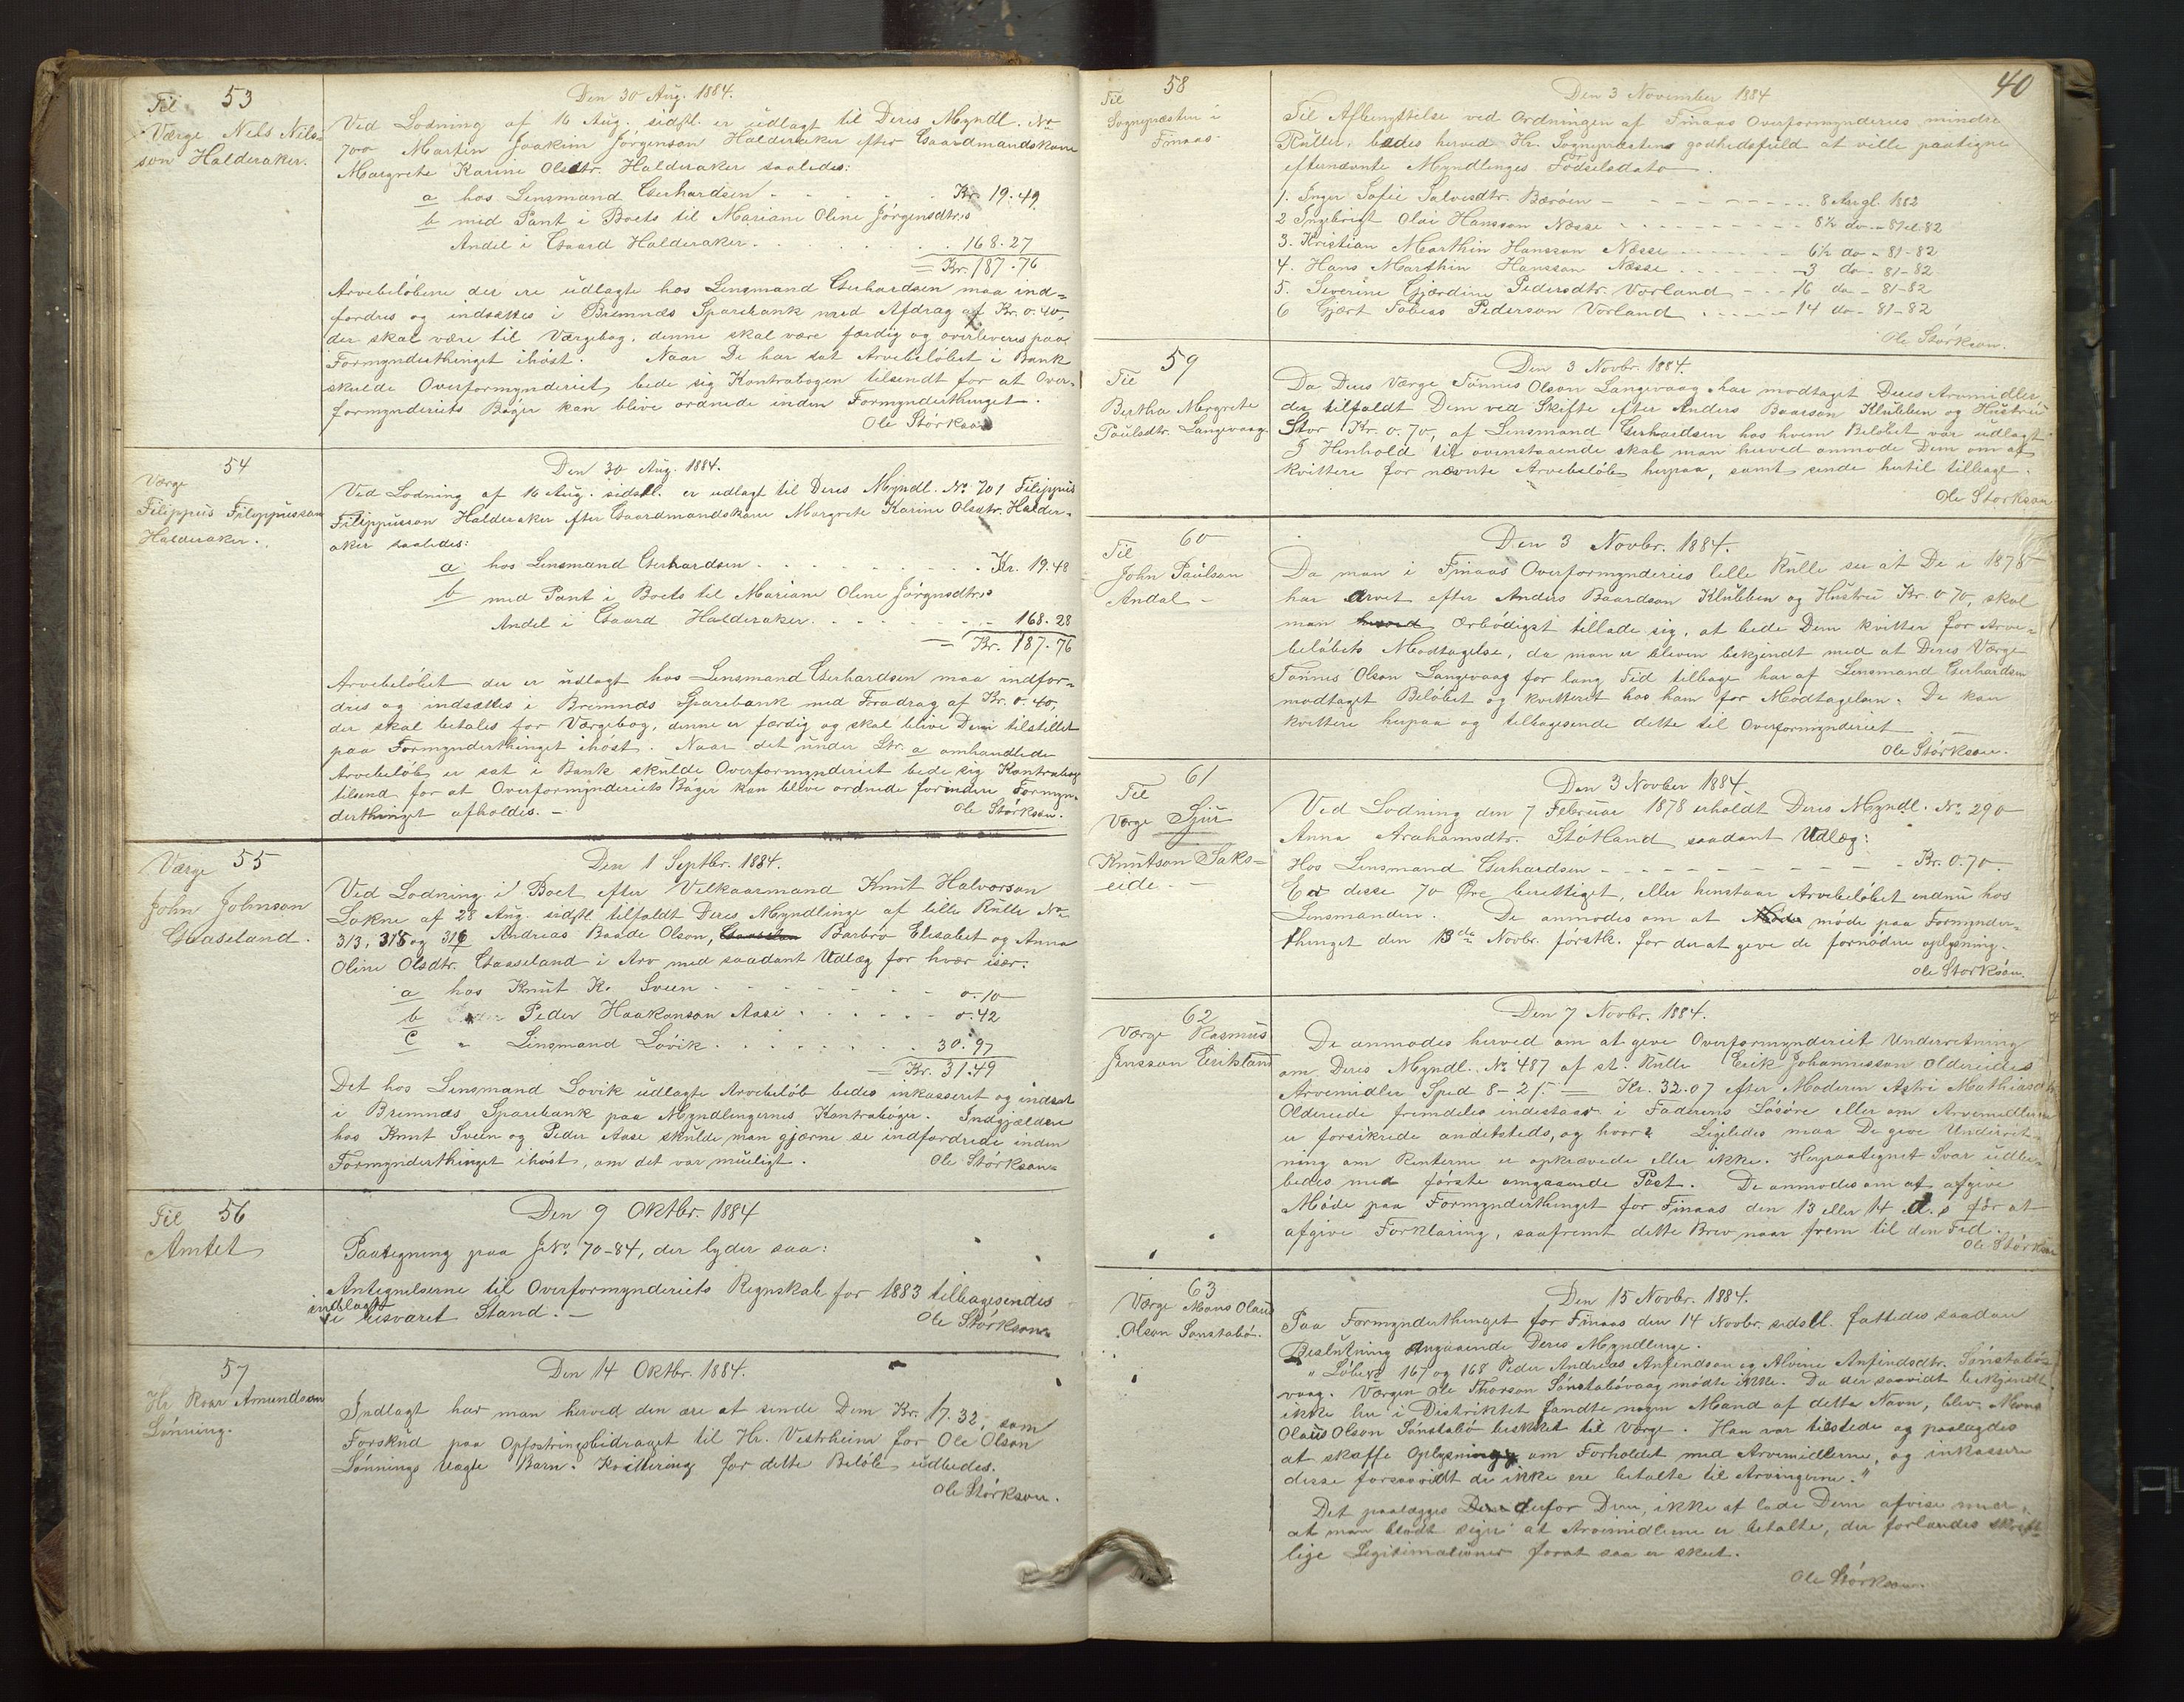 53
Til
Værge Nels Nels-
son Halderaker.
Den 30 Aug. 1884.
Ved Lodning af 16 Aug. sidstl. er udlagt til Deres Myndl. No
700 Martin Joakim Jörgenson Halderaker efter Gaardmandskone
Margrete Karine Olsdtr. Halderaker saaledes:
a hos Lensmand Gerhardsen - Kr. 19.49
b med Pant i Boets til Mariane Oline Jörgensdtrs
Andel i Gaard Halderaker . . . 168.27
= Kr. 187.76
Arvebelöbene der ere udlagte hos Lensmand Gerhardsen maa ind=
fordres og indsættes i Bremnæs Sparebank med Afdrag af Kr. 0.40,
der skal være til Værgebog, denne skal være færdig og overleveres paa
Formynderthinget ihöst. Naar De har sat Arvebelöbet i Bank
skulde Overformynderiet bede sig Kontrabogen tilsendt for at Over-
formynderiets Böger kan blive ordnede inden Formynderthinget.
Ole Störkson
54
Værge
Filippus Filippusson
Halderaker.
Den 30 Aug. 1884.
Ved Lodning af 16 Aug. sidstl. er udlagt til Deres Myndl. No 701 Filippus
Filippusson Halderaker efter Gaardmandskone Margrete Karine Olsdtr. Halder-
aker saaledes:
a hos Lensmand Gerhardsen . . . Kr. 19.48
b med Pant i Boets til Mariane Oline Jörgnsdtrs
Andel i Gaard Halderaker . . . 168.28
= Kr. 187.76
Arvebelöbet der er udlagt hos Lensmand Gerhardsen maa indfor-
dres og indsættes i Bremnæs Sparebank med Fradrag af Kr. 0.40,
der skal betales for Værgebog, denne er færdig og skal blive Dem tilstillet
paa Formynderthinget ihöst. Naar det under Ltr. a omhandlede
Arvebelöb er sat i Bank skulde Overformynderiet bede sig Kontrabog
tilsend for at Overformynderiets Böger kan blive ordnede forinden Formyn-
derthinget afholdes. -
Ole Störkson.
55
Værge
John Johnson
Gaaseland.
Den 1 Septbr. 1884.
Ved Lodning i Boet efter Velkaarmand Knut Halvorson
Lokne af 28 Aug. sidstl. tilfaldt Deres Myndlinge af lille Rulle No
313, 315 og 316 Andreas Baade Olson, Barbro Elisabet og Anna
Oline Olsdtr. Gaaseland i Arv med saadant Udlæg for hver især:
a hos Knut K. Sveen - - - 0.10
b Peder Haakonson Aase . . . 0.42
c " Lensmand Lövik . . . 30.97
= Kr. 31.49
Det hos Lensmand Lovik udlagte Arvebelöb bedes inkasseret og indsat
i Bremnæs Sparebank paa Myndlingernes Kontraböger. Indgjælden
hos Knut Sveen og Peder Aase skulde man gjærne se indfordrede inden
Formynderthinget ihöst, om det var muligt.
Ole Störkson.
56
Til
Amtet
Den 9 Oktbr. 1884
Paategning paa JNo. 70-84, der lyder saa:
Antegnelserne til Overformynderiets Regnskab for 1883 tilbagesendes
indlagt
i besvaret Stand. -
Ole Störkson.
57
Hr Roar Amundson
Lønning.
Den 14 Oktbr. 1884.
Indlagt har man herved den ære at sende Dem Kr. 17.32, som
Forskud paa Opfostringsbidraget til Hr. Vestrheim for Ole Olson
Lønnings uægte Barn. Kvittering for dette Beløb udbedes.
Ole Störkson.
40
58
Til
Sognepræsten i
Finaas.
Den 3 November 1884
Til Afbenyttelse ved Ordningen af Finaas Overformynderies mindre
Ruller, bedes herved Hr. Sognepræsten godhedsfuld at ville paategne
efternævnte Myndlinges Födselsdato.
1. Inger Sofie Salvesdtr. Bærøen - 8 Aar gl. 1882
2 Ingebrigt Olai Hansson Næsse . . . 8½ do - 81 el. 82
3. Kristian Marthin Hansson Næsse . . . 6½ do - 81-82
4. Hans Marthin Hansson Næsse . . . 3 do - 81-82
5. Severine Gjærdine Pedersdtr. Vorland - - 16 do - 81-82
6 Gjært Tobias Pederson Vorland . . . 14 do - 81-82
Ole Störkson.
59
Til
Bertha Mergrete
Paulsdtr. Langevaag.
Den 3 Novbr. 1884.
Da Deres Værge Tönnes Olson Langevaag har modtaget Deres Arvemidler
der tilfaldt Dem ved Skifte efter Anders Baarson Klubben og Hustru
Stor Kr. 0.70, af Lensmand Gerhardsen hos hvem Belöbet var udlagt
I Henhold til ovenstaaende skal man herved anmode Dem om at
kvittere for nævnte Arvebelöb herpaa, samt sende hertil tilbage.
Ole Störkson
60
Til
John Paulson
Andal -
Den 3 Novbr. 1884.
Da man i Finaas Overformynderies lille Rulle ser at De i 1878
har arvet efter Anders Baardson Klubben og Hustru Kr. 0 70, skal
man ærbödigst tillade sig, at bede Dem kvitter for Arve-
belöbets Modtagelse, da man er bleven bekjendt med at Deres Værge
Tönnes Olson Langevaag for lang Tid tilbage har af Lensmand Gerhardsen
modtaget Belöbet og kvitteret hos ham for Modtagelsen. De kan
kvittere herpaa og tilbagesende dette til Overformynderiet
Ole Störkson.
61
Til
Værge Sjur
Knutson Saks-
eide. -
Den 3 November 1884.
Ved Lodning den 7 Februar 1878 erholdt Deres Myndl. No 290
Anna Arahamsdtr. Stötland saadant Udlæg:
Hos Lensmand Gerhardsen - - - Kr. 0.70.
Er disse 70 Øre berettiget, eller henstaar Arvebelöbet endnu hos
Lensmanden. De anmodes om at möde paa Formynder-
thinget den 13de Novbr. förstk. for der at give de fornödne oplysning.
Ole Störkson.
62
Værge Rasmus
Jensson Eriksland
Den 7 Novbr. 1884.
De anmodes herved om at give Overformynderiet Underretning
om Deres Myndl. No 487 af st. Rulle Erik Johannesson Oldereides
Arvemidler Spd 8-2 = Kr. 32.07 efter Moderen Astri Mathiasd
Oldereide fremdeles indestaar i Faderens Lösöre eller om Arvemidlerne
er forsikrede andetsteds, og hvor? Ligeledes maa De give Underret-
ning om Renterne er opkrævede eller ikke. Herpaategnet Svar udbe-
bedes med förste omgaaende Post. De anmodes om at afgive
Möde paa Formynderthinget for Finaas den 13 eller 14 d. s for at
afgive Forklaring, saafremt dette Brev naar frem til den Tid.
Ole Störkson
63
Værge Mons Olaus
Olson Sønstabø.
Den 15 Novbr. 1884.
Paa Formynderthinget for Finaas den 14 Novbr. sidstl. fattedes saadan
Beslutning angaaende Deres Myndlinge.
" Löbe No 167 og 168 Peder Andreas Anfindson og Alvine Anfindsdtr. Sønstabø-
vaag. Værgen Ole Thorson Sønstabøvaag mödte ikke. Da der saavidt bekjendt
ikke her i Distriktet fandtes nogen Mand af dette Navn, blev Mons
Olaus Olson Sønstabø beskikket til Værge. Han var tilstede og paalagdes
at skaffe Oplysning om Forholdet med Arvemidlerne, og inkassere
disse forsaavidt de ikke ere betalte til Arvingerne."
Det paalægges derfor Dem, ikke at lade Dem afvise med
at man blodt siger at Arvemidlerne er betalte, der forlandes skrift-
lige Legitimationer forat saa er skeet.
Ole Störkson.